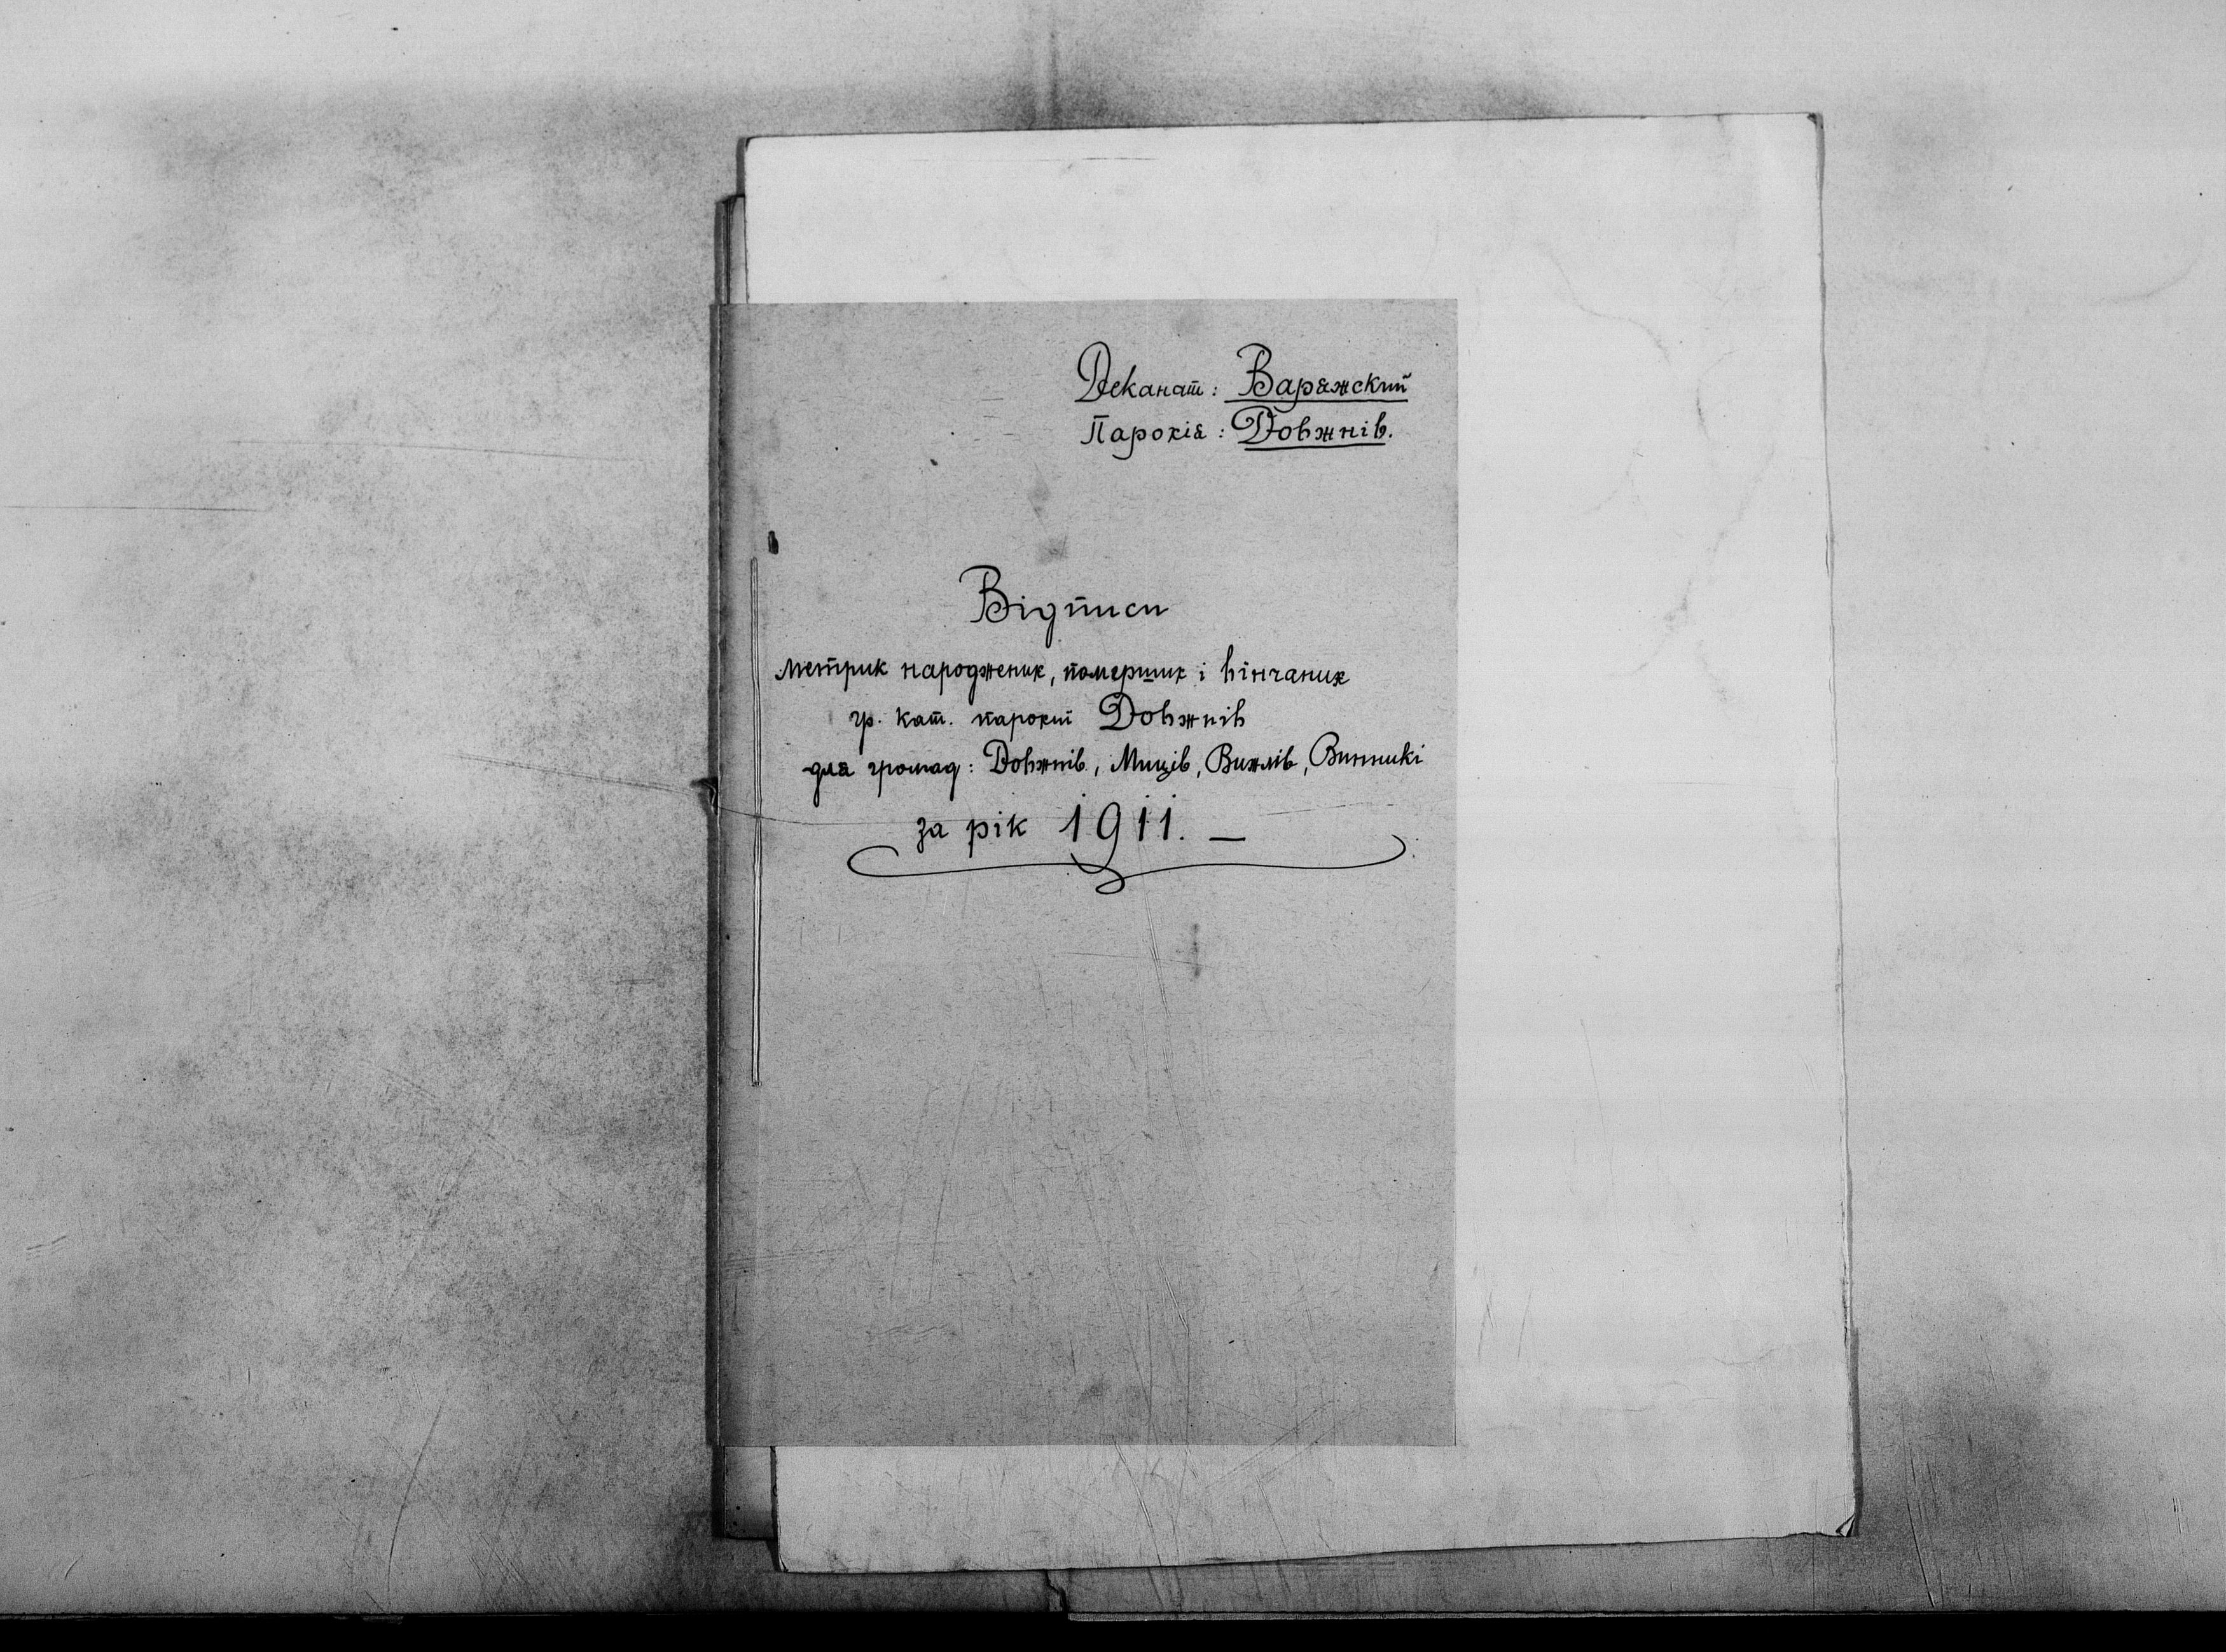 Деканат: Варяжский
Парохія: Довжнів.
Відписи
метрик народжених, померших і вінчаних
гр. кат. парохиї Довжнів
для громад: Довжнів, Миців, Вижлів, Винникі
за рік 1911. —